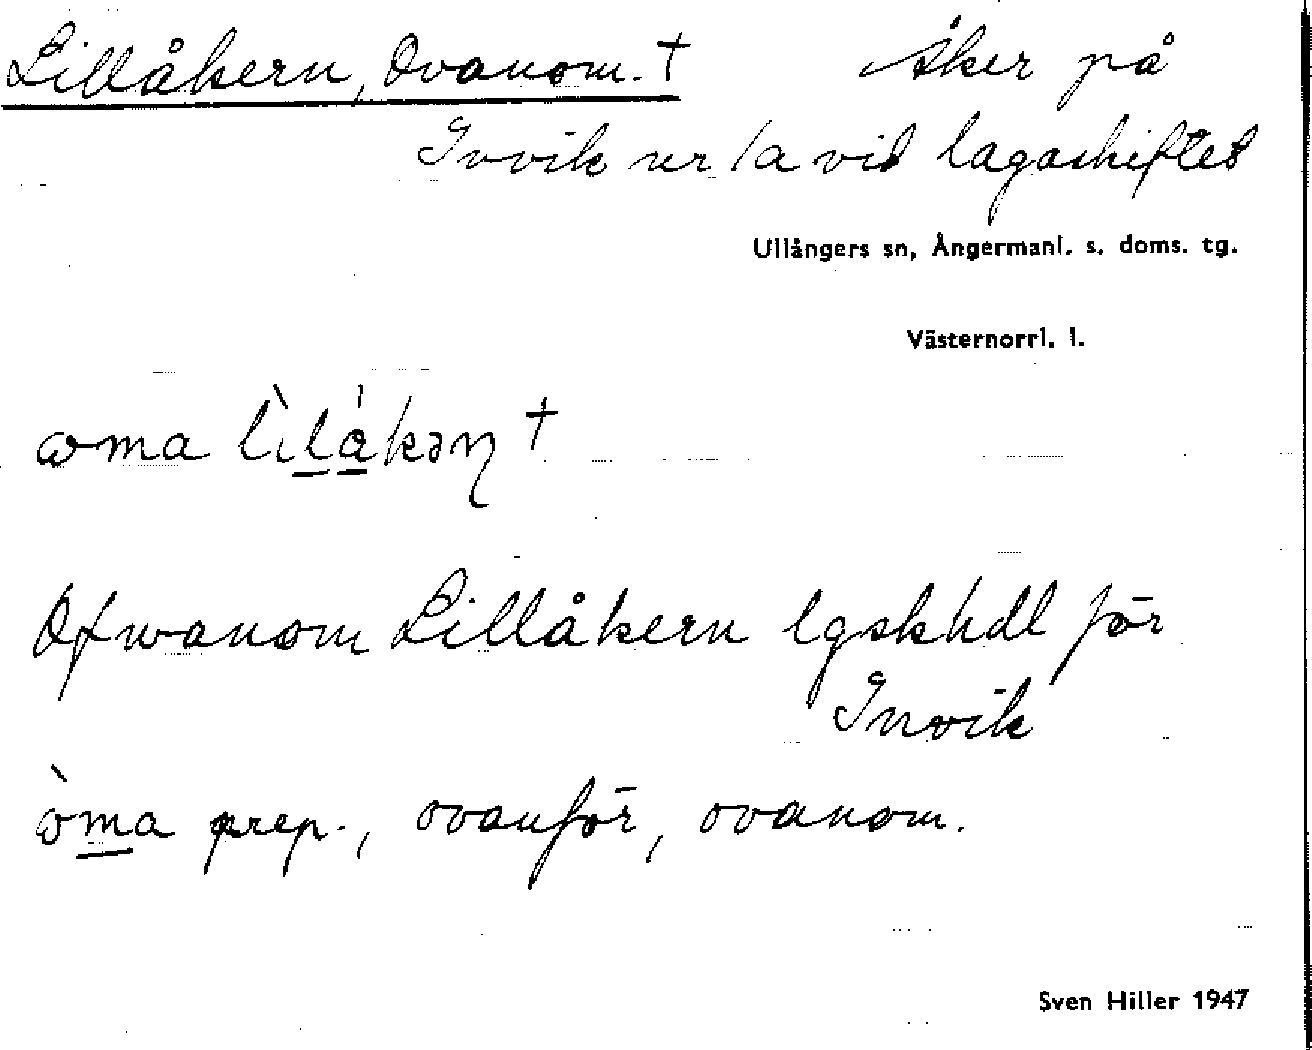 Lillåkern, Ovanom. † Åker på
Invik nr 1a vid lagaskiftet
Ullångers sn, Ångermanl. s. doms. tg.
Västernorrl. l.
oma lìlákəɳ †
Ofwanom Lillåkern lgskhdl för
Invik
òma prep., ovanför, ovanom.
Sven Hiller 1947